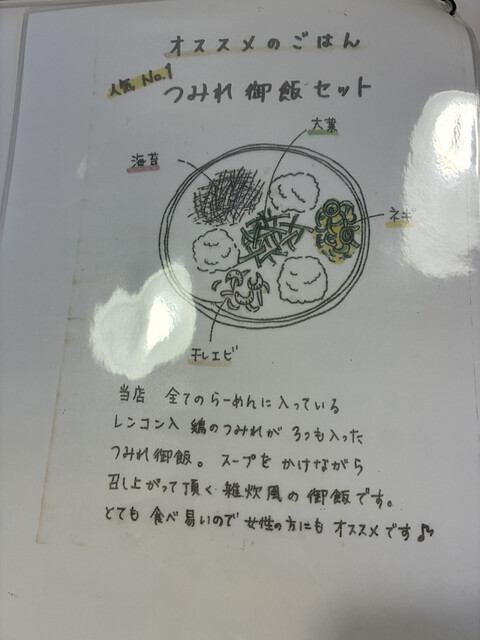 オススメのごはん
人気 No.1
つみれ御飯セット
大葉
海苔
ネギ
干しエビ
当店 全てのらーめんに入っている
レンコン入 鶏のつみれが 3つも入った
つみれ御飯。スープを かけながら
召し上がって頂く 雑炊風の御飯です。
とても 食べ易いので 女性の方にも オススメです♪